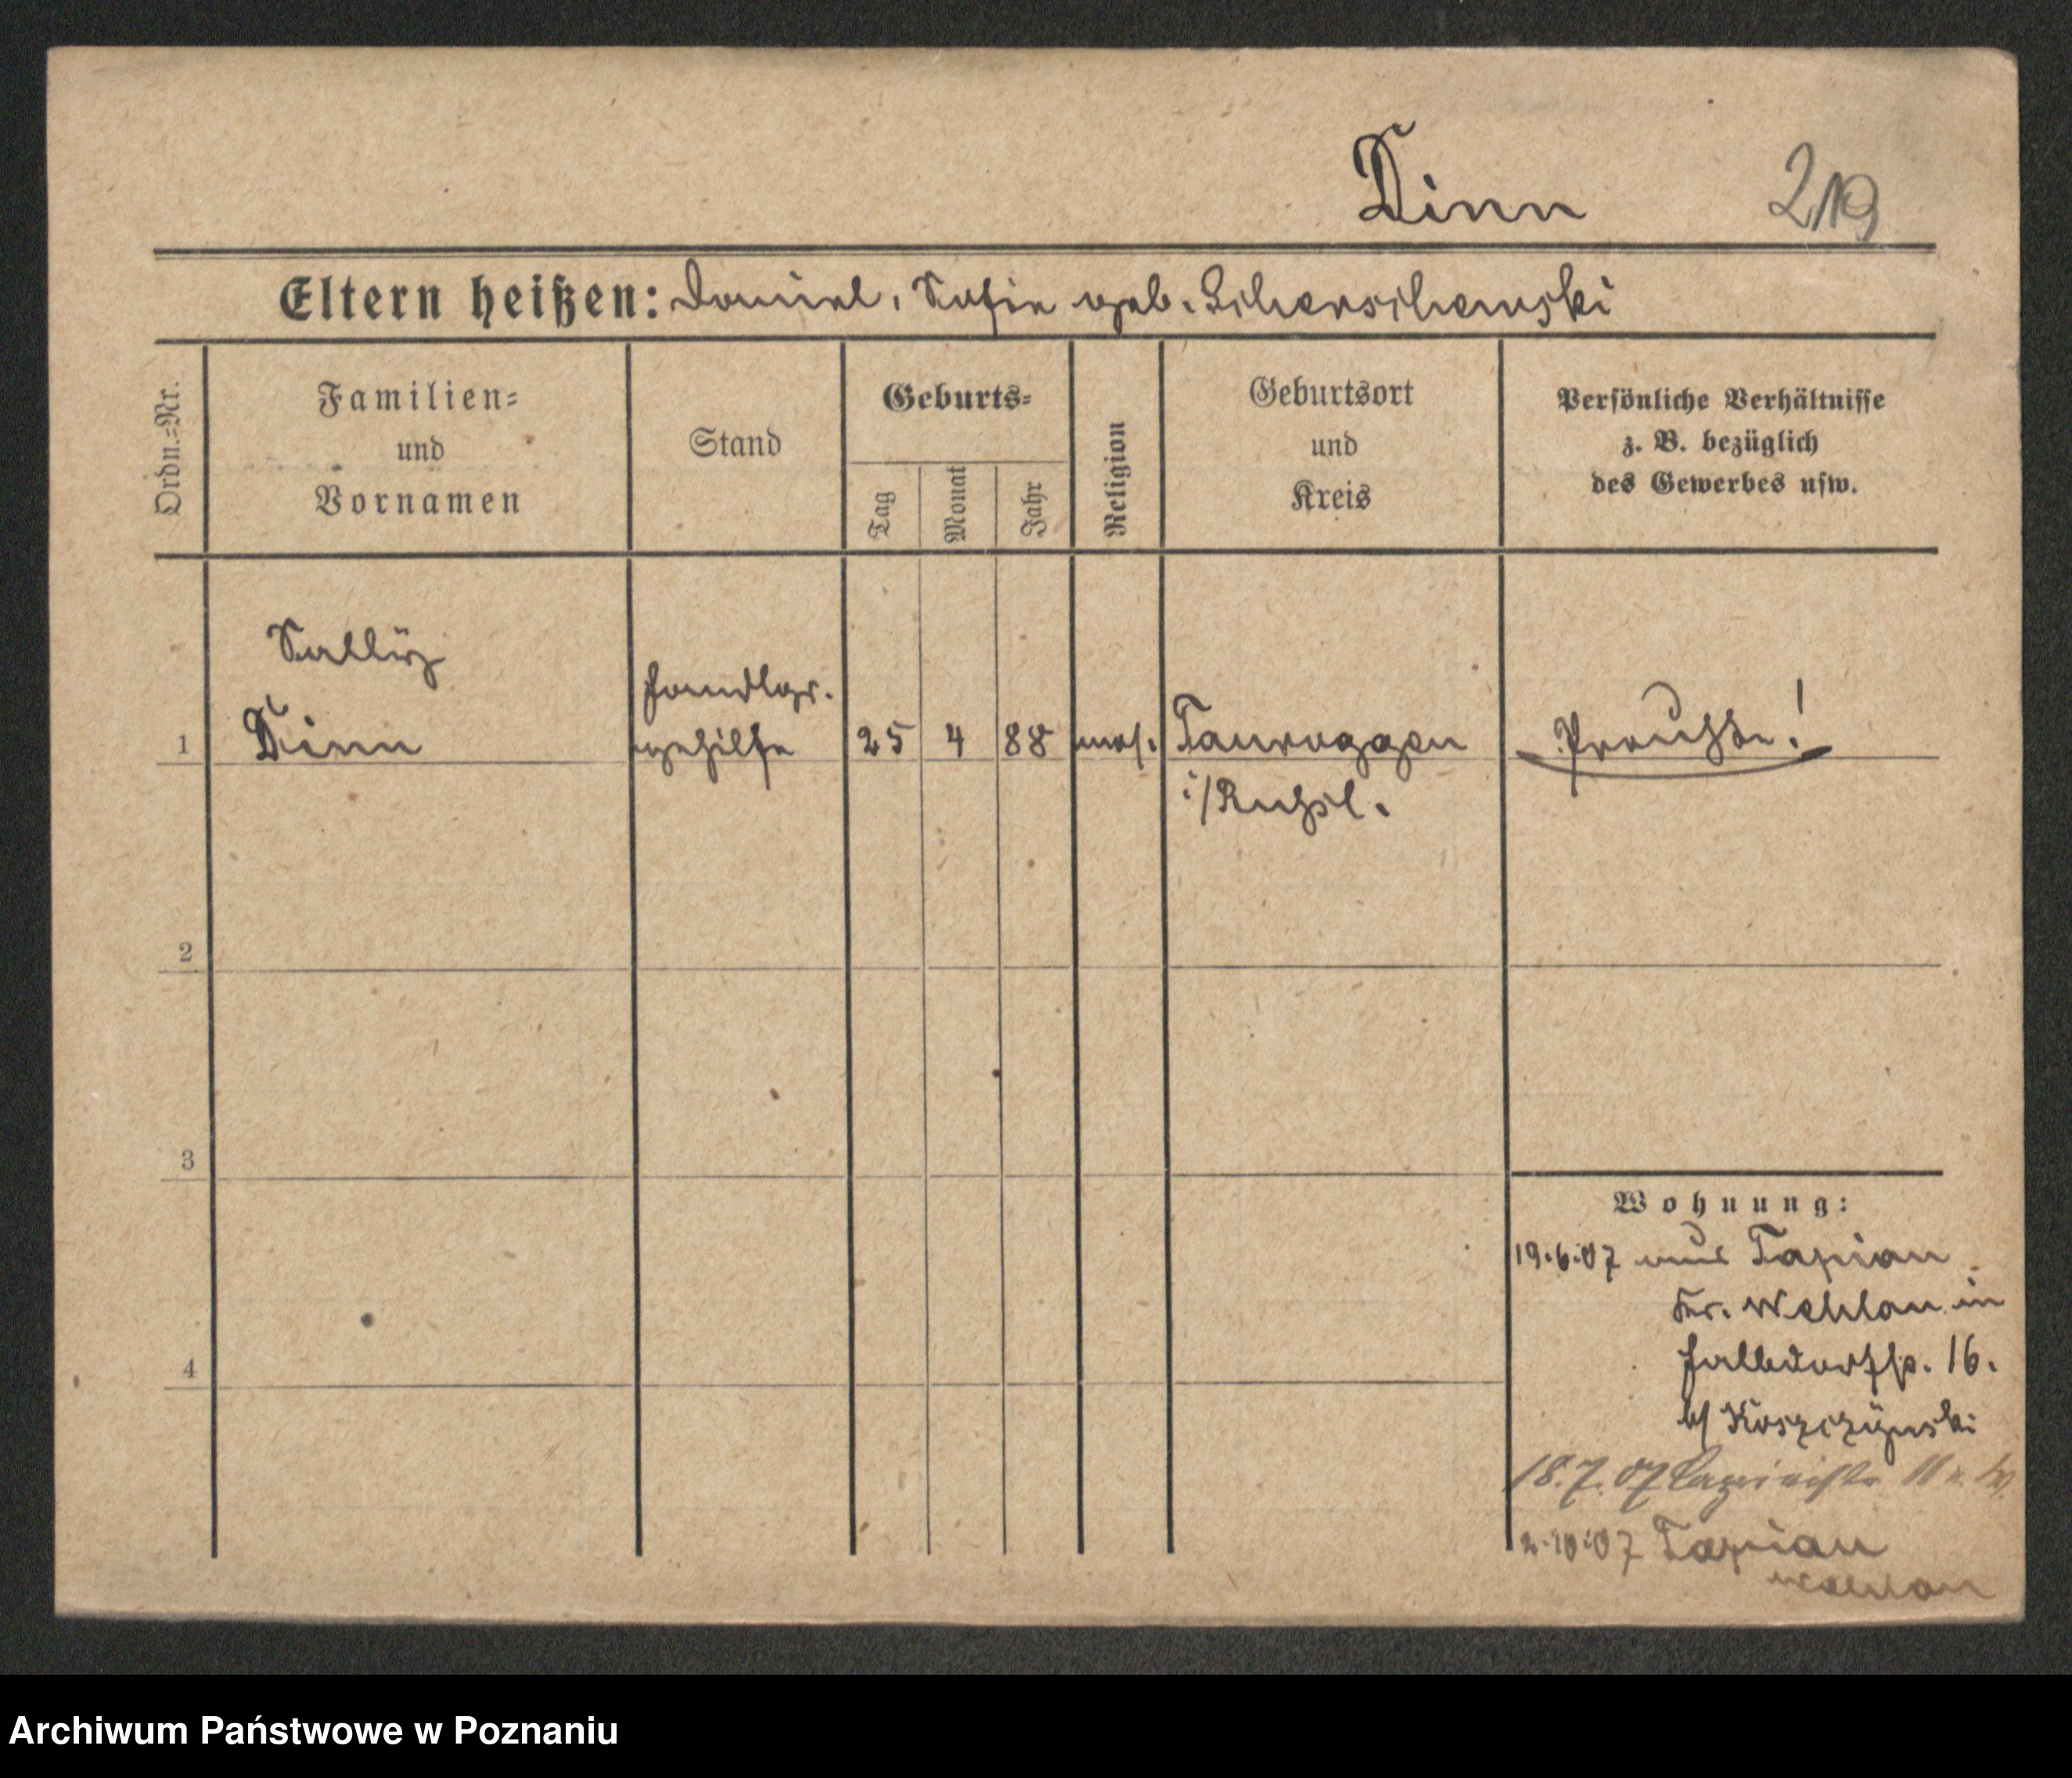 Dinn 219
Eltern heißen: Daniel, Sofie geb. Scherschewski
Ordn.=Nr.
Familien=
und
Vornamen
Stand
Geburts=
Tag
Monat
Jahr
Religion
Geburtsort
und
Kreis
Persönliche Verhältnisse
z. B. bezüglich
des Gewerbes usw.
Sally
Handlgs.
1 Dinn gehilfe 25 4 88 mos. Tauroggen Preusse!
i/Rußl.
2
3
4
Wohnung:
19.6.07 aus Tapiau
Kr. Wehlau in
Halbdorfstr. 16.
b/ Koszczynski
18.7.07 11
2.10.07 Tapiau
Wehlau
Archiwum Państwowe w Poznaniu